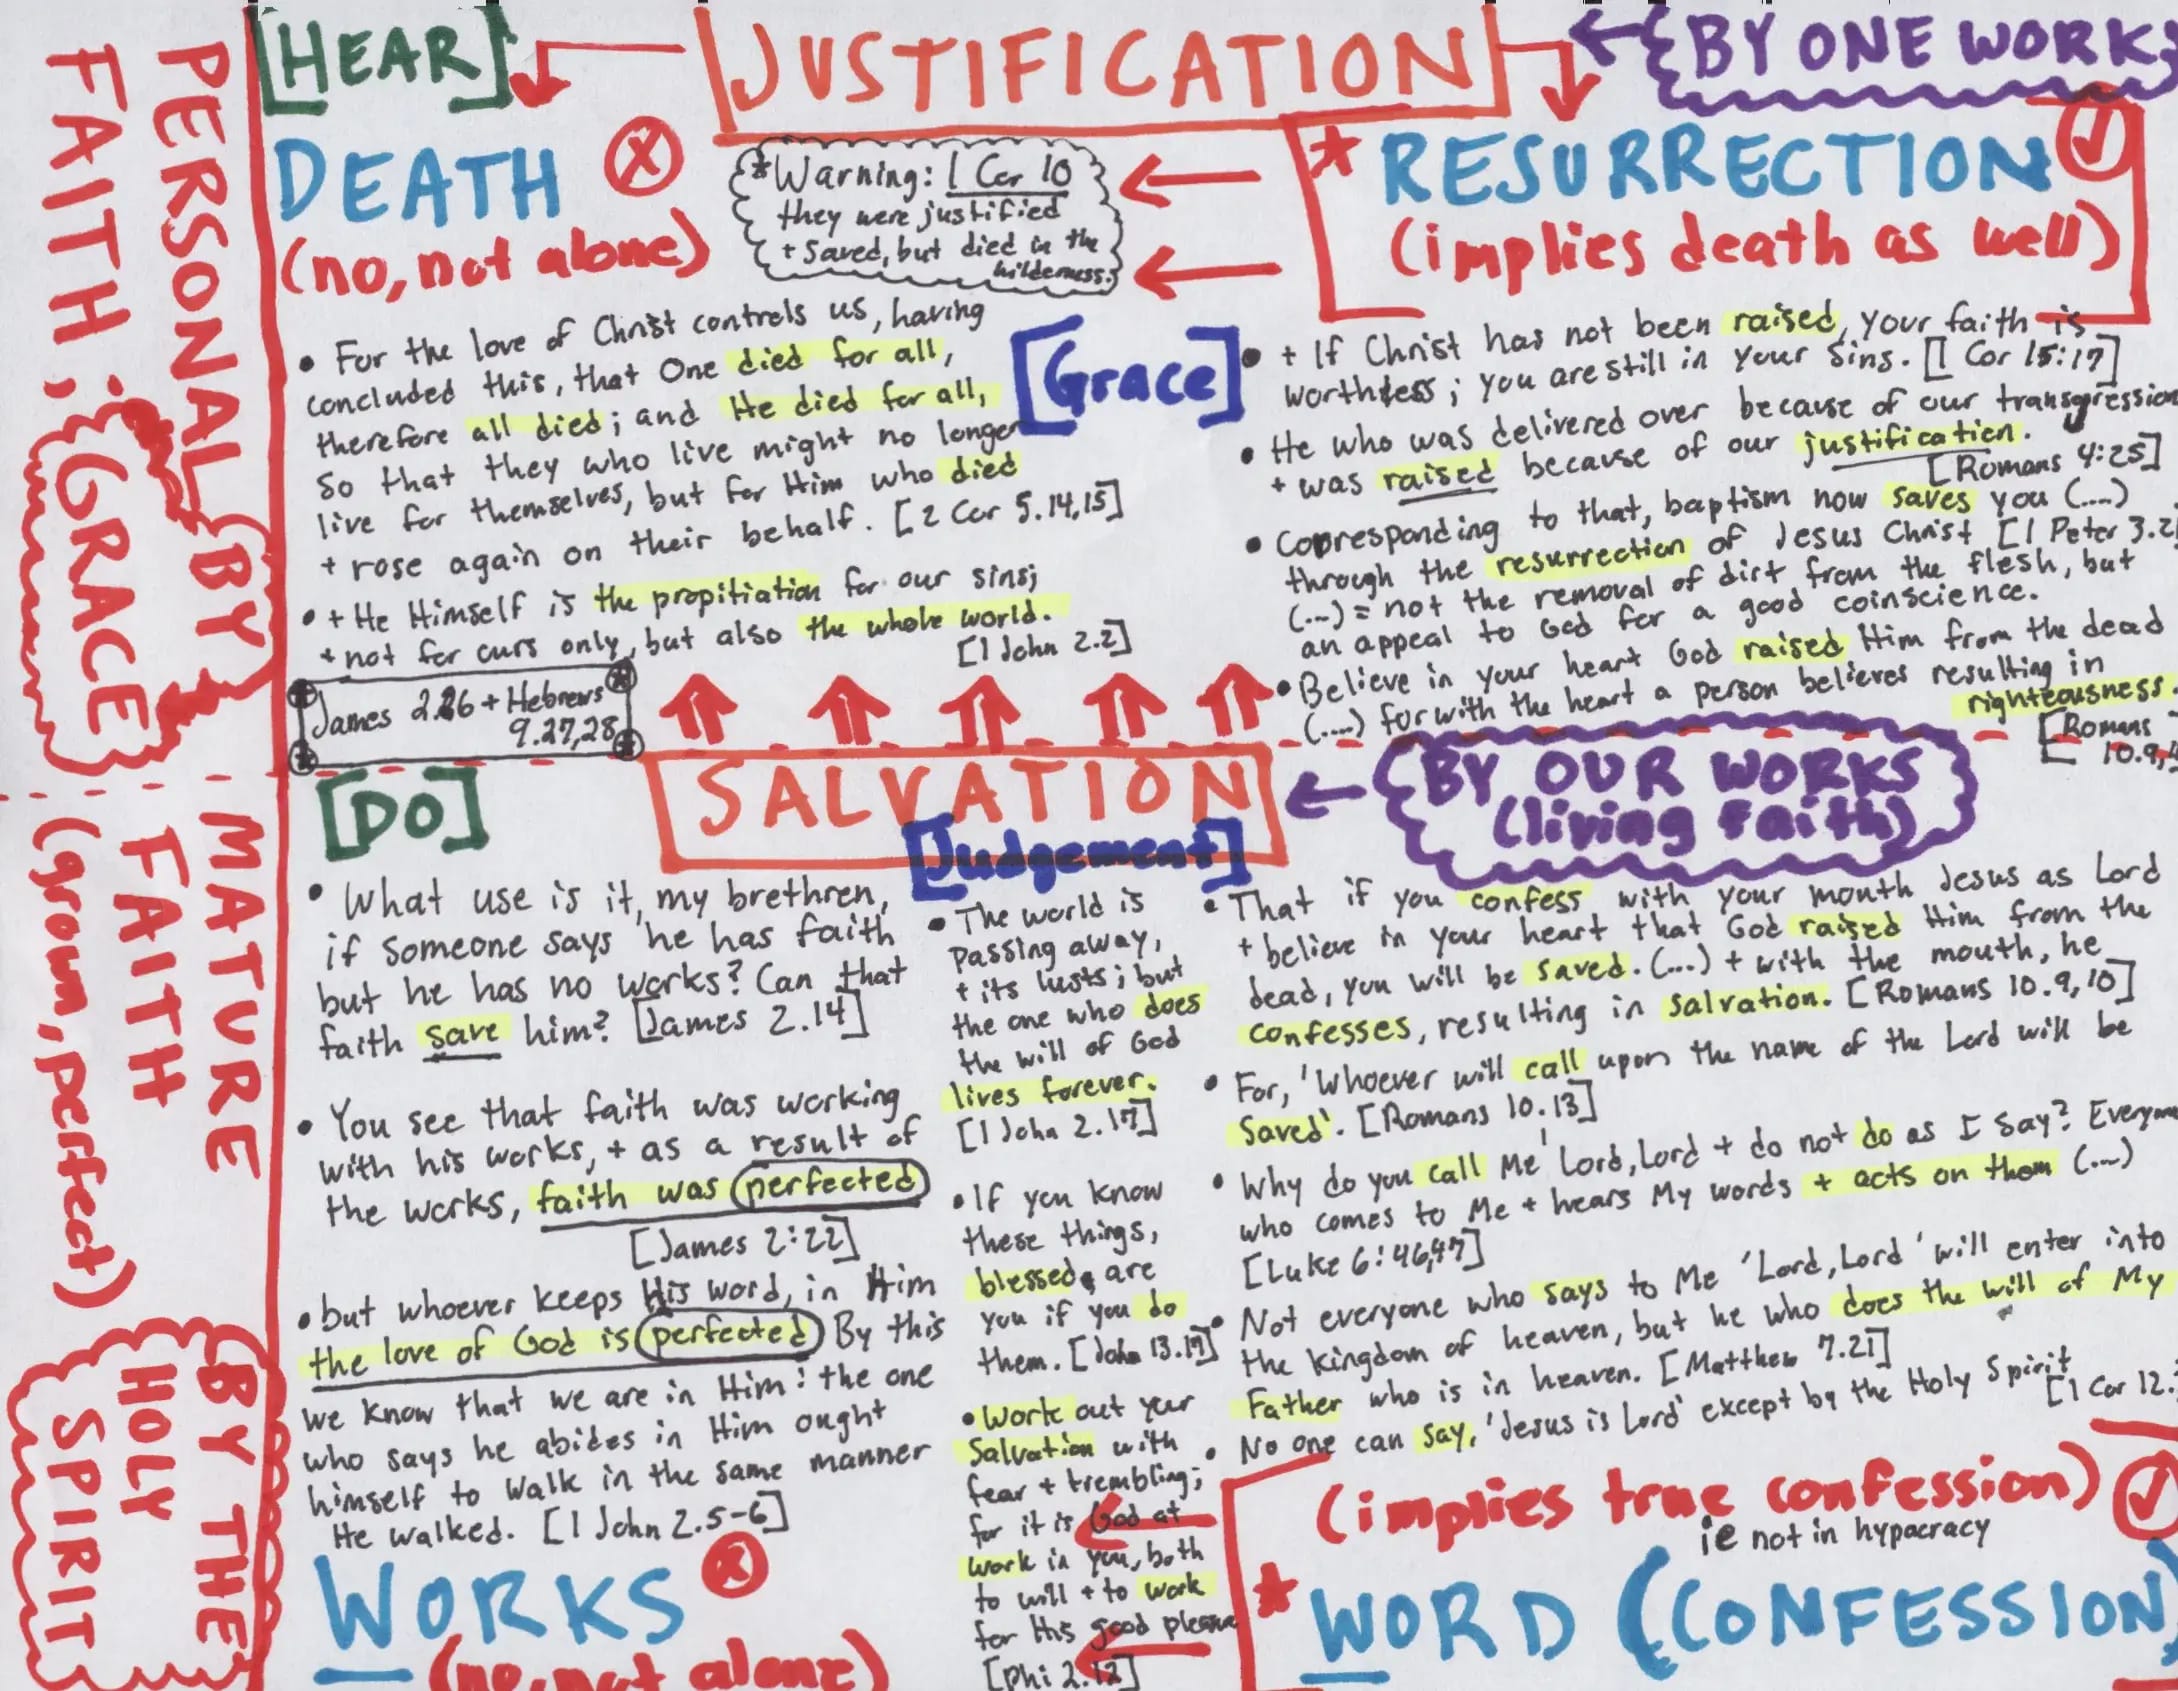 [HEAR]
JUSTIFICATION
BY ONE WORK
DEATH
(no, not alone)
*Warning: 1 Cor 10
they were justified
+ saved, but died in the
wilderness.
* RESURRECTION
(implies death as well)
PERSONAL
FAITH;
(BY
GRACE)
• For the love of Christ controls us, having
concluded this, that One died for all,
therefore all died; and He died for all,
so that they who live might no longer
live for themselves, but for Him who died
+ rose again on their behalf. [2 Cor 5.14,15]
• + He Himself is the propitiation for our sins;
+ not for ours only, but also the whole world.
[1 John 2.2]
James 2.26 + Hebrews
9.27,28
[Grace]
• + If Christ has not been raised, your faith is
worthless; you are still in your sins. [1 Cor 15:17]
• He who was delivered over because of our transgression
+ was raised because of our justification.
[Romans 4:25]
• Corresponding to that, baptism now saves you (....)
through the resurrection of Jesus Christ [1 Peter 3.21
(...) = not the removal of dirt from the flesh, but
an appeal to God for a good coinscience.
• Believe in your heart God raised Him from the dead
(....) for with the heart a person believes resulting in
righteousness.
[Romans
10.9,
[DO]
SALVATION
[Judgement]
BY OUR WORKS
(living faith)
MATURE
FAITH
(grown, perfect)
(BY THE
HOLY
SPIRIT
• What use is it, my brethren,
if someone says he has faith
but he has no works? Can that
faith save him? [James 2.14]
• You see that faith was working
with his works, + as a result of
the works, faith was perfected
[James 2:22]
• but whoever keeps His word, in Him
the love of God is perfected By this
we know that we are in Him: the one
who says he abides in Him ought
himself to walk in the same manner
He walked. [1 John 2.5-6]
WORKS
(no, not alone)
• The world is
passing away,
+ its lusts; but
the one who does
the will of God
lives forever.
[1 John 2.17]
• If you know
these things,
blessed are
you if you do
them. [John 13.17]
• Work out your
salvation with
fear + trembling;
for it is God at
work in you, both
to will + to work
for His good pleasure
[Phi 2.12]
• That if you confess with your mouth Jesus as Lord
+ believe in your heart that God raised Him from the
dead, you will be saved. (...) + with the mouth, he
confesses, resulting in salvation. [Romans 10.9,10]
• For, 'Whoever will call upon the name of the Lord will be
saved'. [Romans 10.13]
• Why do you call Me 'Lord, Lord + do not do as I say? Everyone
who comes to Me + hears My words + acts on them (....)
[Luke 6:46,47]
• Not everyone who says to Me 'Lord, Lord' will enter into
the kingdom of heaven, but he who does the will of My
Father who is in heaven. [Matthew 7.21]
• No one can say, 'Jesus is Lord' except by the Holy Spirit
[1 Cor 12.
(implies true confession)
ie not in hypocracy
* WORD (CONFESSION)